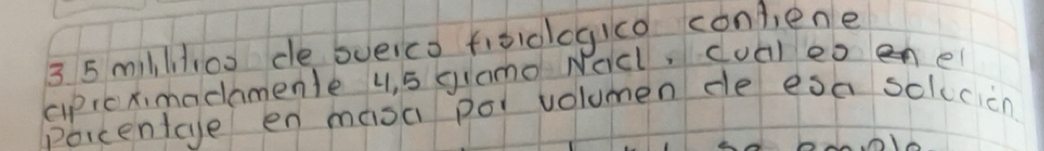 3 5 mililitros de suerco fisiologico contiene
aproximadamente 4,5 gramo Nacl. cual es en el
porcentaje en masa por volumen de esa solución